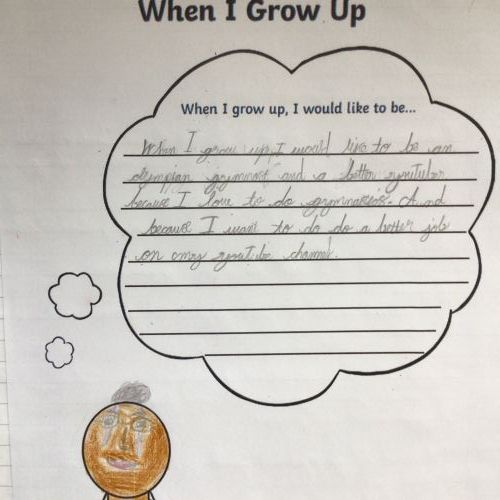 When I Grow Up
When I grow up, I would like to be...
When I grow up, I would like to be an
olympian gymnast and a better youtuber
because I love to do gymnastics. And
because I want to do do a better job
on my youtube channel.